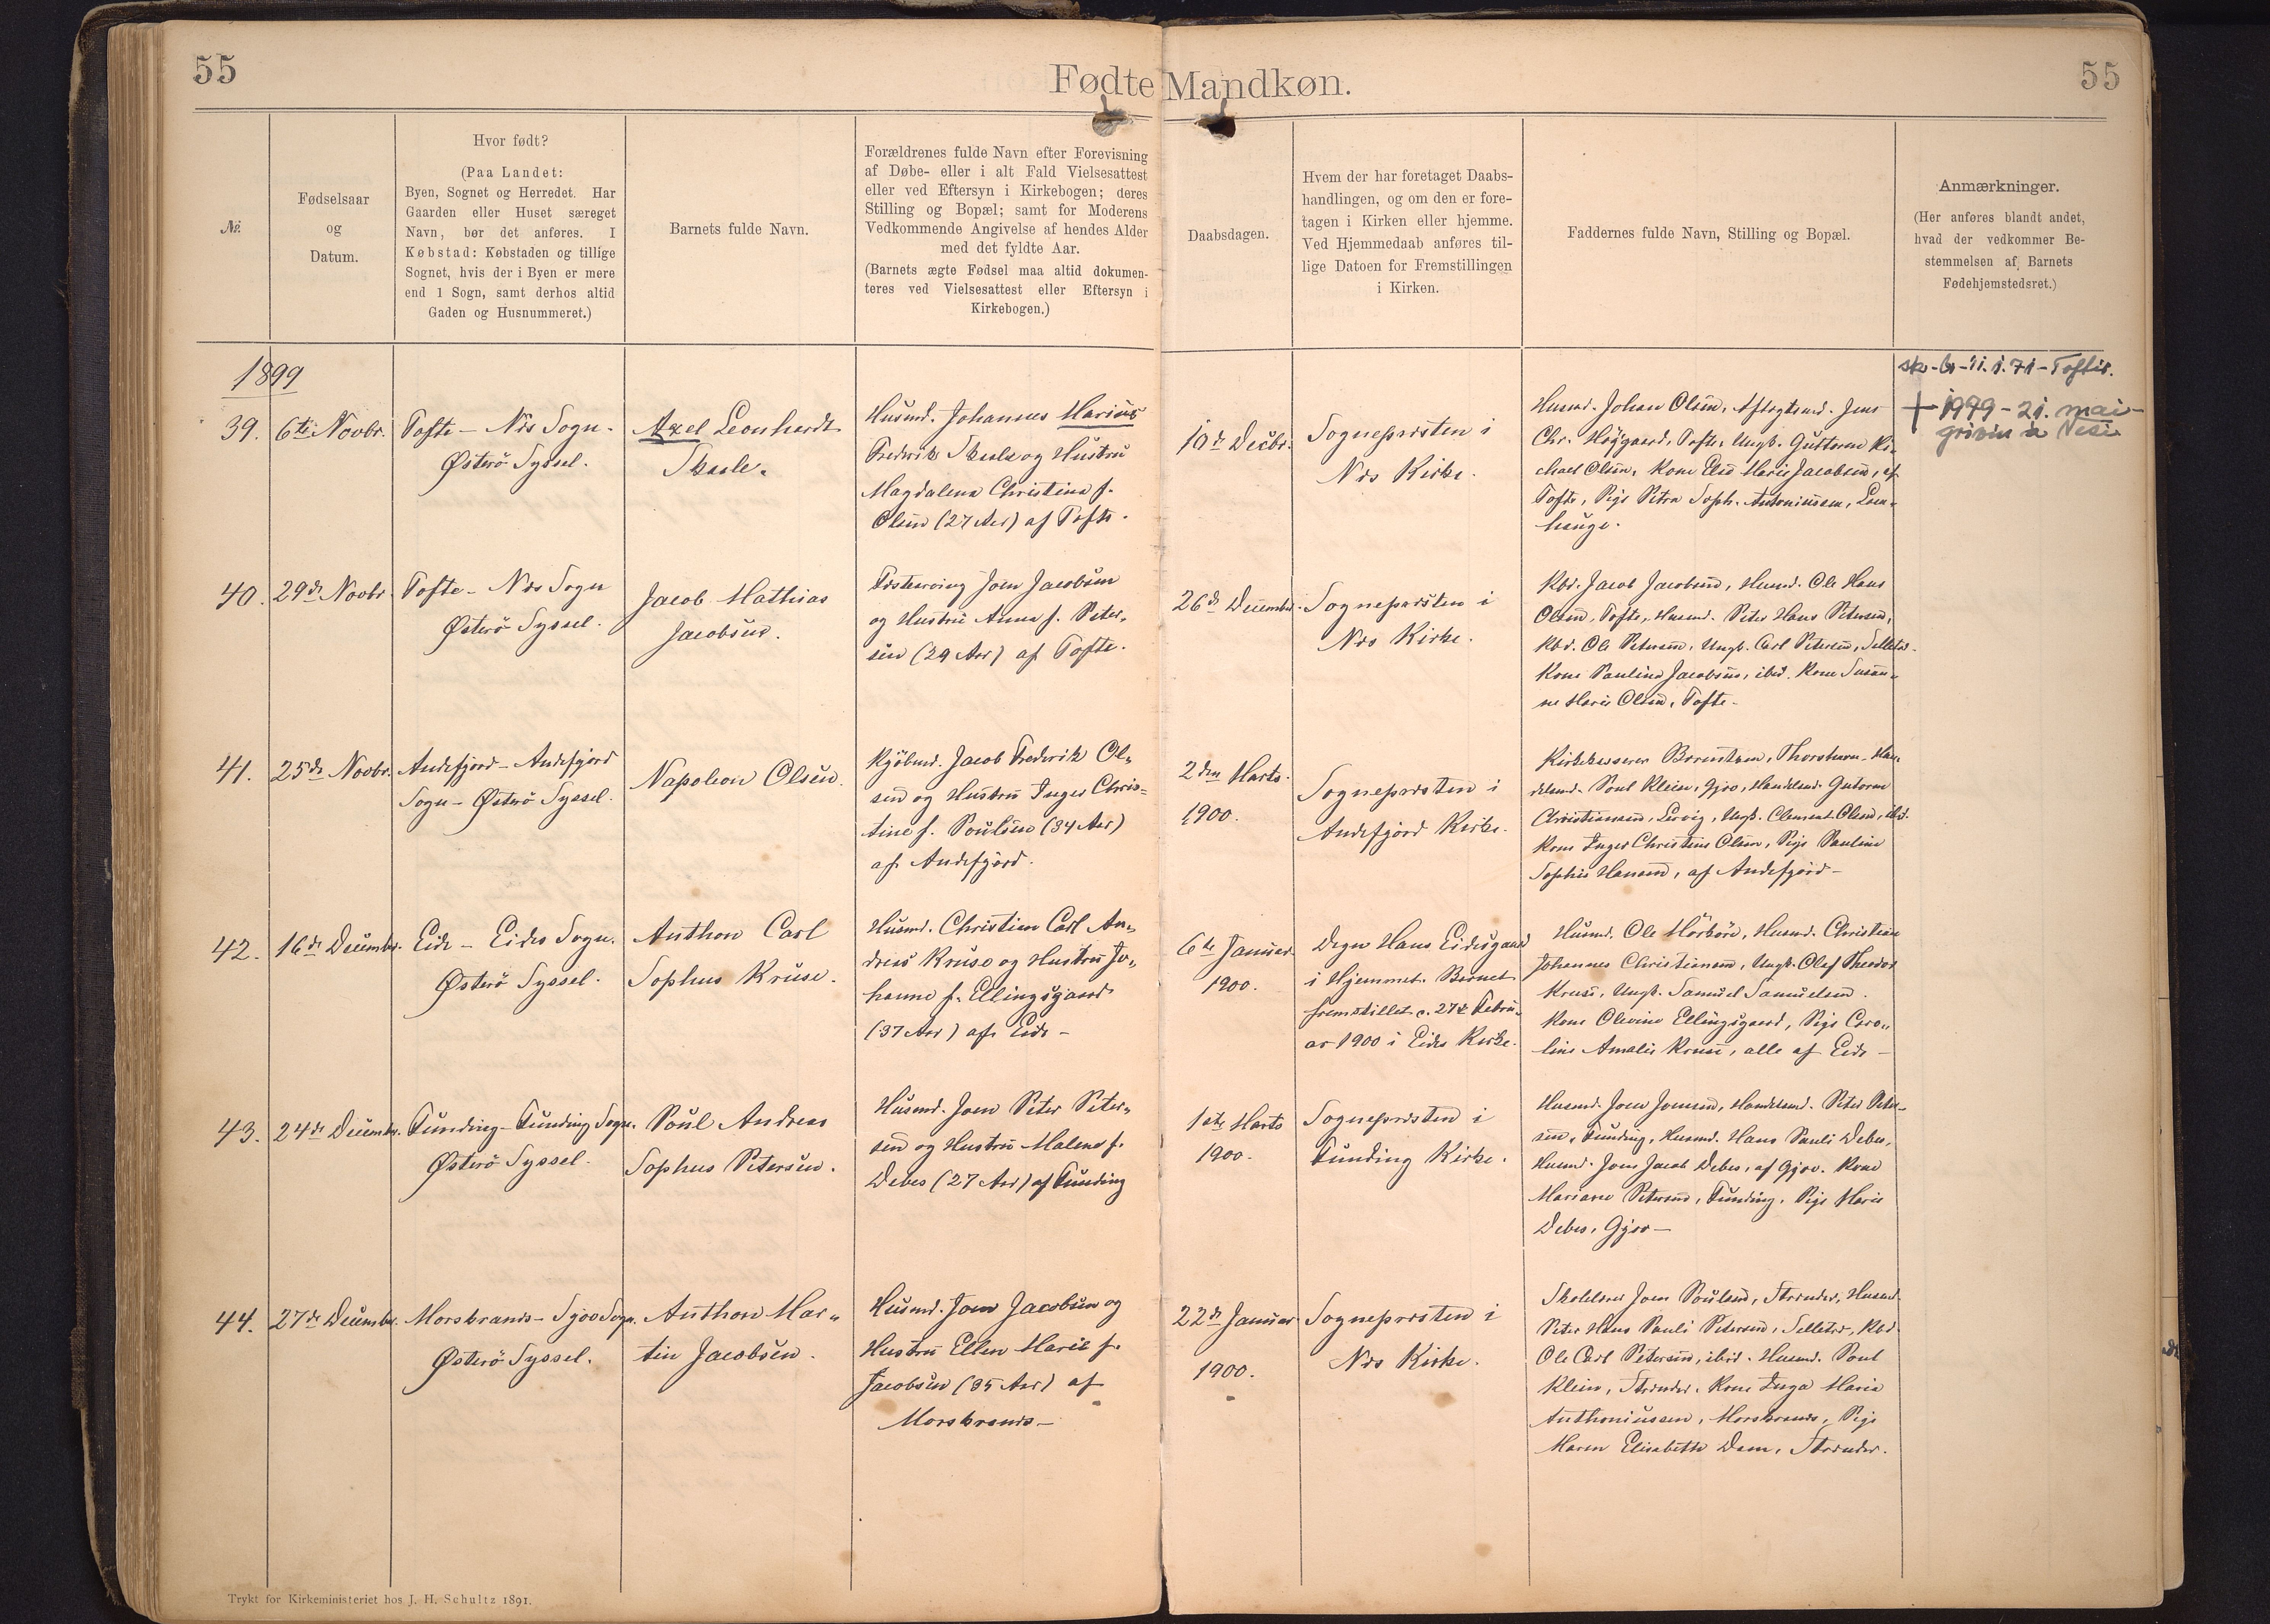 55
Fødte Mandkøn.
55
№.
Fødselsaar
og
Datum.
Hvor født?
(Paa Landet:
Byen, Sognet og Herredet. Har
Gaarden eller Huset særeget
Navn, bør det anføres. I
Købstad: Købstaden og tillige
Sognet, hvis der i Byen er mere
end 1 Sogn, samt derhos altid
Gaden og Husnummeret.)
Barnets fulde Navn.
Forældrenes fulde Navn efter Forevisning
af Døbe- eller i alt Fald Vielsesattest
eller ved Eftersyn i Kirkebogen; deres
Stilling og Bopæl; samt for Moderens
Vedkommende Angivelse af hendes Alder
med det fyldte Aar.
(Barnets ægte Fødsel maa altid dokumen-
teres ved Vielsesattest eller Eftersyn i
Kirkebogen.)
Daabsdagen.
Hvem der har foretaget Daabs-
handlingen, og om den er fore-
tagen i Kirken eller hjemme.
Ved Hjemmedaab anføres til-
lige Datoen for Fremstillingen
i Kirken.
Faddernes fulde Navn, Stilling og Bopæl.
Anmærkninger.
(Her anføres blandt andet,
hvad der vedkommer Be-
stemmelsen af Barnets
Fødehjemstedsret.)
1899
39.
6te Novbr.
Tofte - Næs Sogn.
Østerö Syssel.
Axel Leonhardt
Skaale.
Husmd. Johannes Marius
Frederik Skaale og Hustru
Magdalena Christina f.
Olsen (27 Aar) af Tofte.
10de Decbr.
Sognepræsten i
Næs Kirke.
Husmd. Johan Olsen, Aftægtsmd. Jens
Chr. Höjgaard, Tofte, Ungk. Guttorm Mi-
chael Olsen, Kone Else Marie Jacobsen, af
Tofte, Pige Petra Soph. Antoniussen, Lam-
hauge.
sk-b-11.1.71-Toftir.
† 1979 - 21. mai -
grivin á Nesi
40.
29de Novbr
Tofte - Næs Sogn
Østerö Syssel.
Jacob Mathias
Jacobsen.
og Hustru Anna f. Peter-
sen (29 Aar) af Tofte.
26de Decembr.
Sognepræsten i
Næs Kirke.
Kbd. Jacob Jacobsen, Husmd. Ole Hans
Olsen, Tofte, Husmd. Peter Hans Petersen,
Kbd. Ole Petersen, Ungk. Carl Petersen, Selletræ.
Kone Pauline Jacobsen, ibid. Kone Susan-
ne Marie Olsen, Tofte -
41.
25de Novbr.
Andefjord - Andefjord
Sogn - Østerö Syssel.
Napoleon Olsen.
Kjöbmd. Jacob Frederik Ol-
sen og Hustru Inger Chris-
tine f. Poulsen (34 Aar)
af Andefjord.
2den Marts
1900.
Sognepræsten i
Andefjord Kirke.
Kirkekasserer Bærentsen, Thorshavn, Han-
delsmd. Poul Klein, Gjov, Handelsmd. Gutorm
Christiansen, Lervig, Ungk. Clement Olsen, ibid.
Kone Inger Christine Olsen, Pige Pauline
Sophie Hansen, af Andefjord -
42.
16de Decembr.
Eide - Eides Sogn.
Østerö Syssel.
Anthon Carl
Sophus Kruse.
Husmd. Christian Carl An-
dreas Kruse og Hustru Jo-
hanne f. Ellingsgaard
(37 Aar) af Eide -
6te Januar
1900.
Degn Hans Eidesgaard
i Hjemmet. Barnet
fremstillet c. 27de Febru-
ar 1900 i Eides Kirke.
Husmd. Ole Hörbörr, Husmd. Christian
Johannes Christiansen, Ungk. Olaf Theodor
Kruse, Ungk. Samuel Samuelsen.
Kone Olevine Ellingsgaard, Pige Caro-
line Amalie Kruse, alle af Eide -
43.
24de Decembr.
Funding - Funding Sogn.
Østerö Syssel.
Poul Andreas
Sophus Petersen.
Husmd. Joen Peter Peter-
sen og Hustru Malene f.
Debes (27 Aar) af Funding
1ste Marts
1900.
Sognepræsten i
Funding Kirke.
Husmd. Joen Joensen, Handelsmd. Peter Peter-
sen, Funding, Husmd. Hans Pauli Debes,
Husmd. Joen Jacob Debes, af Gjov. Kone
Mariane Petersen, Funding, Pige Marie
Debes, Gjov -
44.
27de Decembr.
Morskranes - Sjov Sogn.
Østerö Syssel.
Anthon Mar-
tin Jacobsen.
Husmd. Joen Jacobsen og
Hustru Ellen Marie f.
Jacobsen (35 Aar) af
Morskranes -
22de Januar
1900.
Sognepræsten i
Næs Kirke.
Skolelærer Joen Poulsen, Strænder, Husmd.
Peter Hans Pauli Petersen, Selletræ, Kbd.
Ole Carl Petersen, ibid. Husmd. Poul
Klein, Strænder. Kone Inga Maria
Anthoniussen, Morskranes, Pige
Maren Elisabeth Dam, Strænder.
Trykt for Kirkeministeriet hos J. H. Schultz 1891.